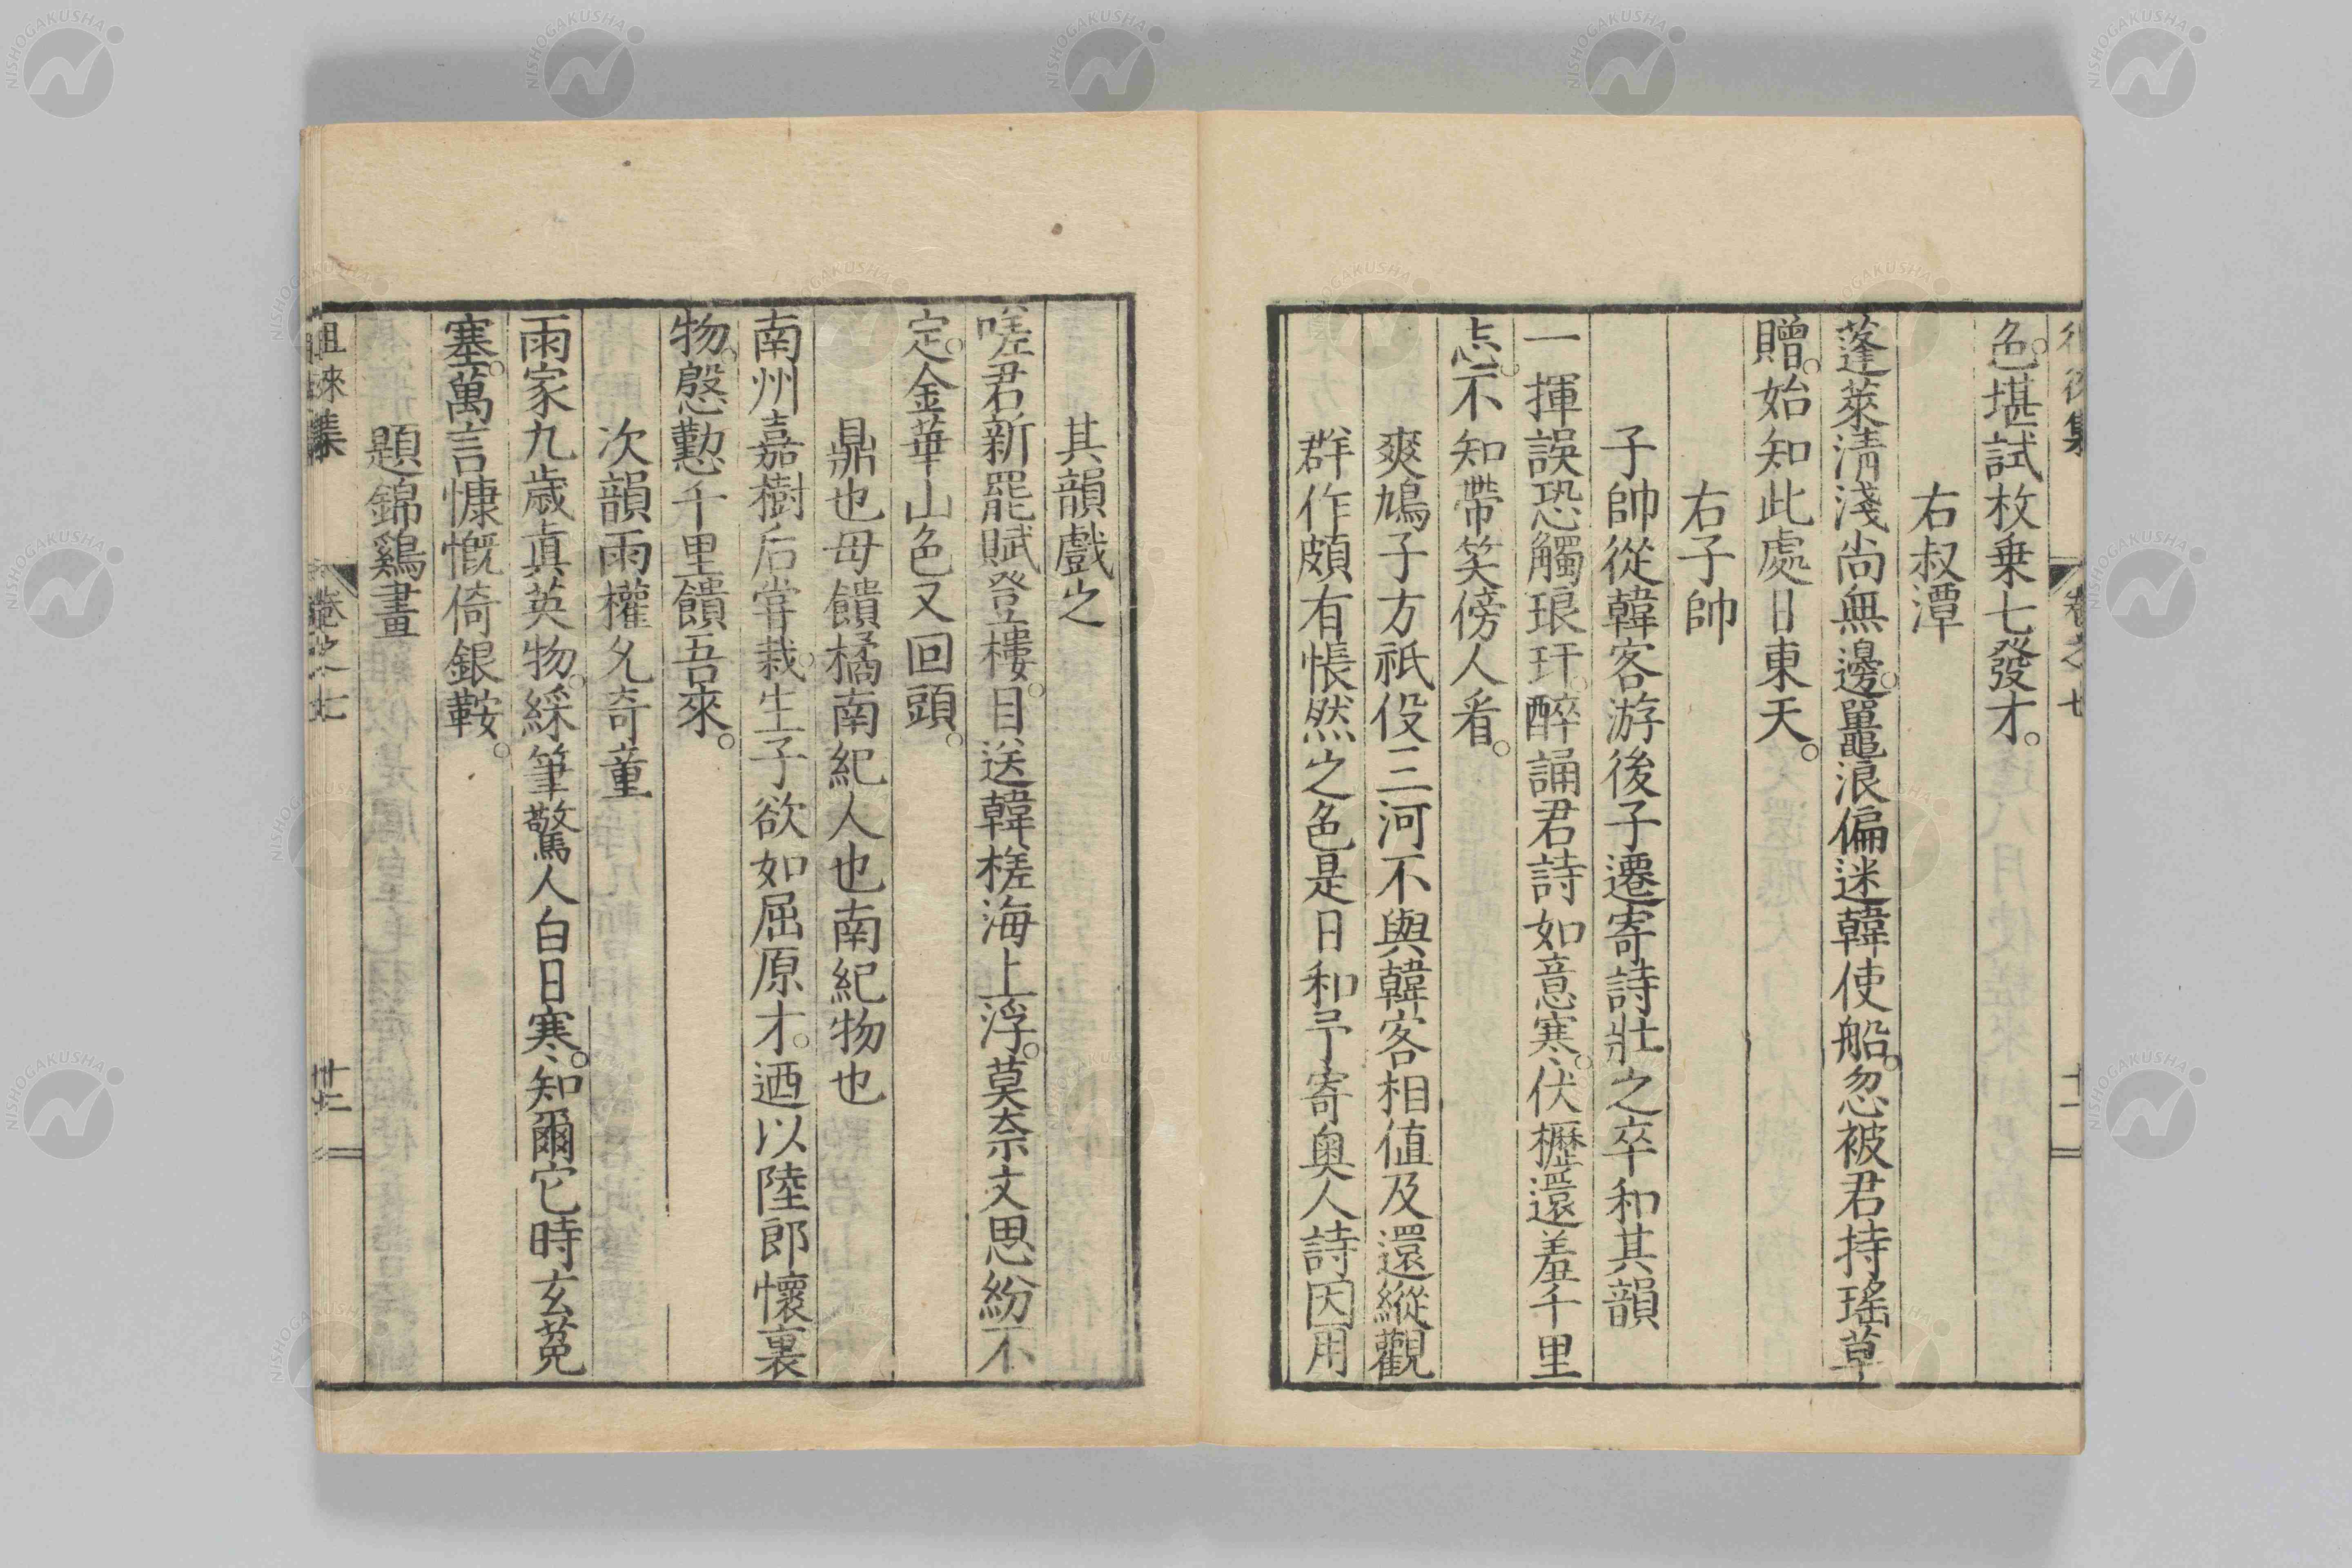 色堪試枚乗七發才
右叔潭
蓬萊淸淺尚無邊黿鼉浪偏迷韓使船忽被君持瑤草
贈始知此處日東天
右子帥
子帥從韓客游後子遷寄詩壯之卒和其韻
一揮誤恐觸琅玕醉誦君詩如意寒伏櫪還羞千里
志不知帶笑傍人看
爽鳩子方祇役三河不與韓客相值及還縱觀
群作頗有悵然之色是日和予寄奥人詩因用
其韻戲之
嗟君新罷賦登樓目送韓槎海上浮莫奈文思紛不
定金華山色又回頭
鼎也母饋橘南紀人也南紀物也
南州嘉樹后甞栽生子欲如屈原才迺以陸郎懷裏
物慇懃千里饋吾來
次韻雨權允奇童
雨家九歲眞英物綵筆驚人白日寒知爾它時玄菟
塞萬言慷慨倚銀鞍
題錦鷄畫
徂徠集 卷之七
NISHOGAKUSHA